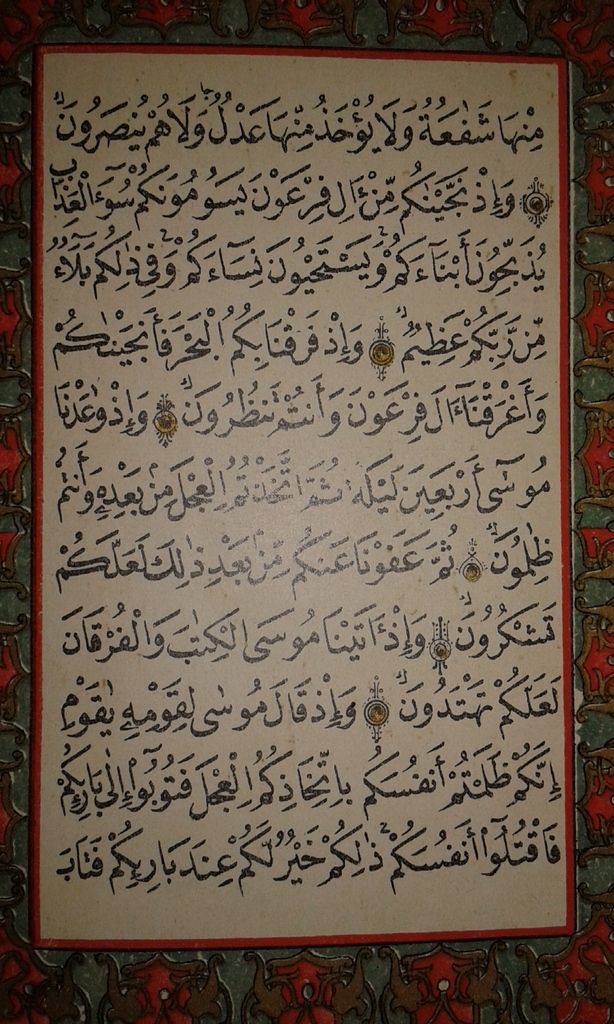 مِنْهَا شَفَٰعَةٌ وَلَا يُؤْخَذُ مِنْهَا عَدْلٌ وَلَا هُمْ يُنصَرُونَ
وَإِذْ نَجَّيْنَٰكُم مِّنْ ءَالِ فِرْعَوْنَ يَسُومُونَكُمْ سُوٓءَ الْعَذَابِ
يُذَبِّحُونَ أَبْنَآءَكُمْ وَيَسْتَحْيُونَ نِسَآءَكُمْ وَفِى ذَٰلِكُم بَلَآءٌ
مِّن رَّبِّكُمْ عَظِيمٌ وَإِذْ فَرَقْنَا بِكُمُ الْبَحْرَ فَأَنجَيْنَٰكُمْ
وَأَغْرَقْنَآ ءَالَ فِرْعَوْنَ وَأَنتُمْ تَنظُرُونَ وَإِذْ وَٰعَدْنَا
مُوسَىٰٓ أَرْبَعِينَ لَيْلَةً ثُمَّ اتَّخَذْتُمُ الْعِجْلَ مِنۢ بَعْدِهِۦ وَأَنتُمْ
ظَٰلِمُونَ ثُمَّ عَفَوْنَا عَنكُم مِّنۢ بَعْدِ ذَٰلِكَ لَعَلَّكُمْ
تَشْكُرُونَ وَإِذْ ءَاتَيْنَا مُوسَى الْكِتَٰبَ وَالْفُرْقَانَ
لَعَلَّكُمْ تَهْتَدُونَ وَإِذْ قَالَ مُوسَىٰ لِقَوْمِهِۦ يَٰقَوْمِ
إِنَّكُمْ ظَلَمْتُمْ أَنفُسَكُم بِاتِّخَاذِكُمُ الْعِجْلَ فَتُوبُوٓا۟ إِلَىٰ بَارِئِكُمْ
فَاقْتُلُوٓا۟ أَنفُسَكُمْ ذَٰلِكُمْ خَيْرٌ لَّكُمْ عِندَ بَارِئِكُمْ فَتَابَ